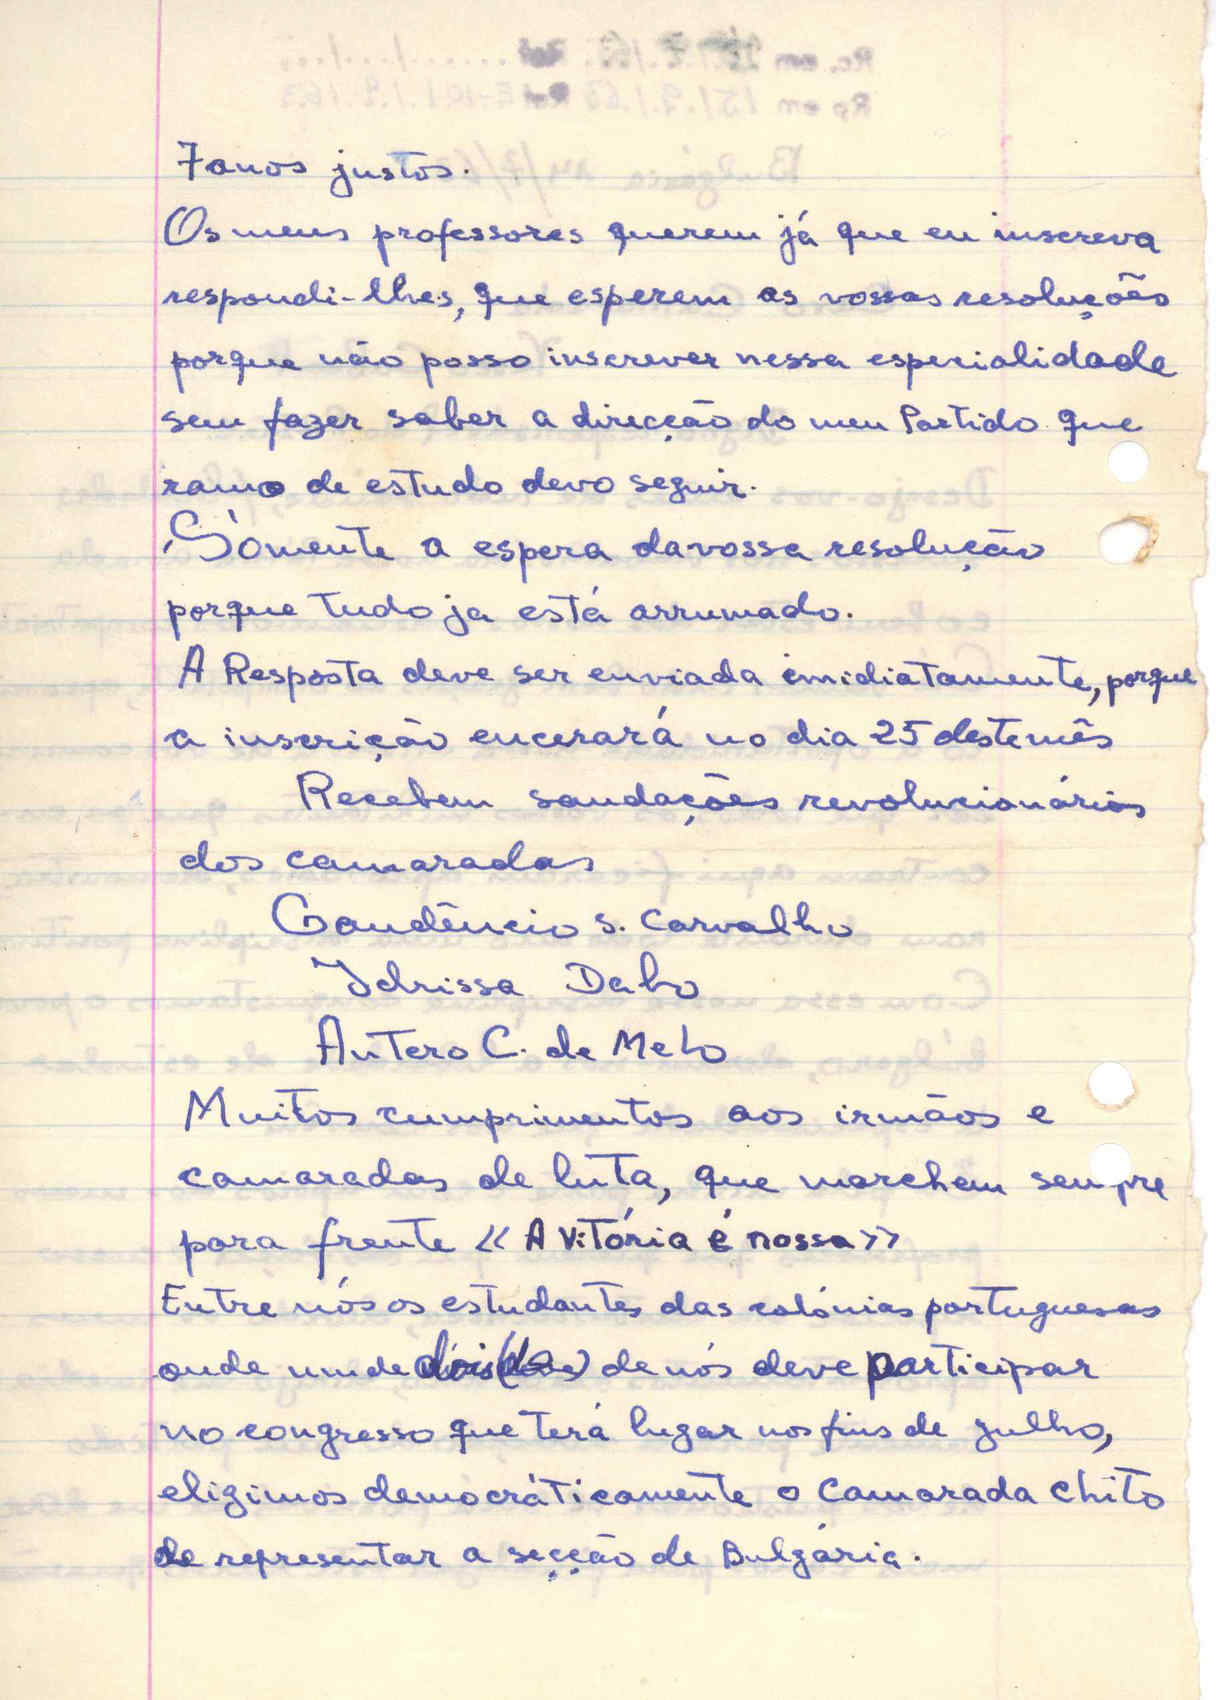 7 anos justos.
Os meus professores querem já que eu inscreva
respondi-lhes, que esperem as vossas resoluções
porque não posso inscrever nessa especialidade
sem fazer saber a direcção do meu Partido que
ramo de estudo devo seguir.
Sómente a espera da vossa resolução
porque tudo ja está arrumado.
A Resposta deve ser enviada imidiatamente, porque
a inscrição encerará no dia 25 deste mês
Recebem saudações revolucionárias
dos camaradas
Gaudêncio S. Carvalho
Idrissa Dabo
Antero C. de Melo
Muitos cumprimentos aos irmãos e
camaradas de luta, que marchem sempre
para frente « A Vitória é nossa»
Entre nós os estudantes das colónias portuguesas
onde um de dois de nós deve participar
no congresso que terá lugar nos fins de julho,
eligimos democráticamente o Camarada Chito
de representar a secção de Bulgária.